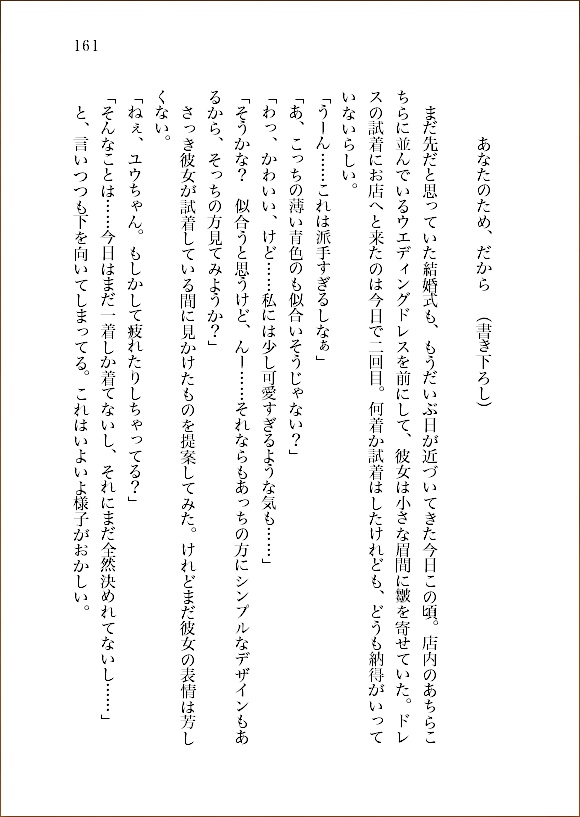 161
あなたのため、だから　（書き下ろし）
　まだ先だと思っていた結婚式も、もうだいぶ日が近づいてきた今日この頃。店内のあちらこ
ちらに並んでいるウエディングドレスを前にして、彼女は小さな眉間に皺を寄せていた。ドレ
スの試着にお店へと来たのは今日で二回目。何着か試着はしたけれども、どうも納得がいって
いないらしい。
「うーん……これは派手すぎるしなぁ」
「あ、こっちの薄い青色のも似合いそうじゃない？」
「わっ、かわいい、けど……私には少し可愛すぎるような気も……」
「そうかな？　似合うと思うけど、んー……それならもあっちの方にシンプルなデザインもあ
るから、そっちの方見てみようか？」
　さっき彼女が試着している間に見かけたものを提案してみた。けれどまだ彼女の表情は芳し
くない。
「ねぇ、ユウちゃん。もしかして疲れたりしちゃってる？」
「そんなことは……今日はまだ一着しか着てないし、それにまだ全然決めれてないし……」
　と、言いつつも下を向いてしまってる。これはいよいよ様子がおかしい。